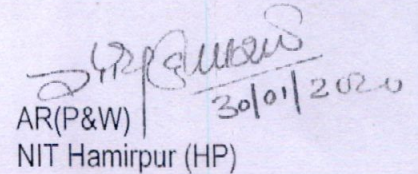 30/01/2020
AR(P&W)
NIT Hamirpur (HP)